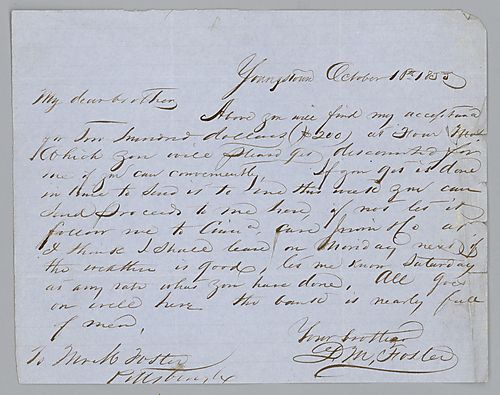 Youngstown October 10th 1855
My dear brother
Above you will find my acceptance
for Two hundred dollars ($200) at four
Which you will please get discounted for
me if you can conveniently. If you get is done
in time to send it to me this week you can
send proceeds to me here, if not let it
follow me to Cinn. care
I think I shall leave on Monday next if
the weather is good, let me know Saturday
at any rate what you have done, All goes
on well here the bank is nearly full
of men,
Your brother
D. M. Foster
To Foster
Pittsburgh